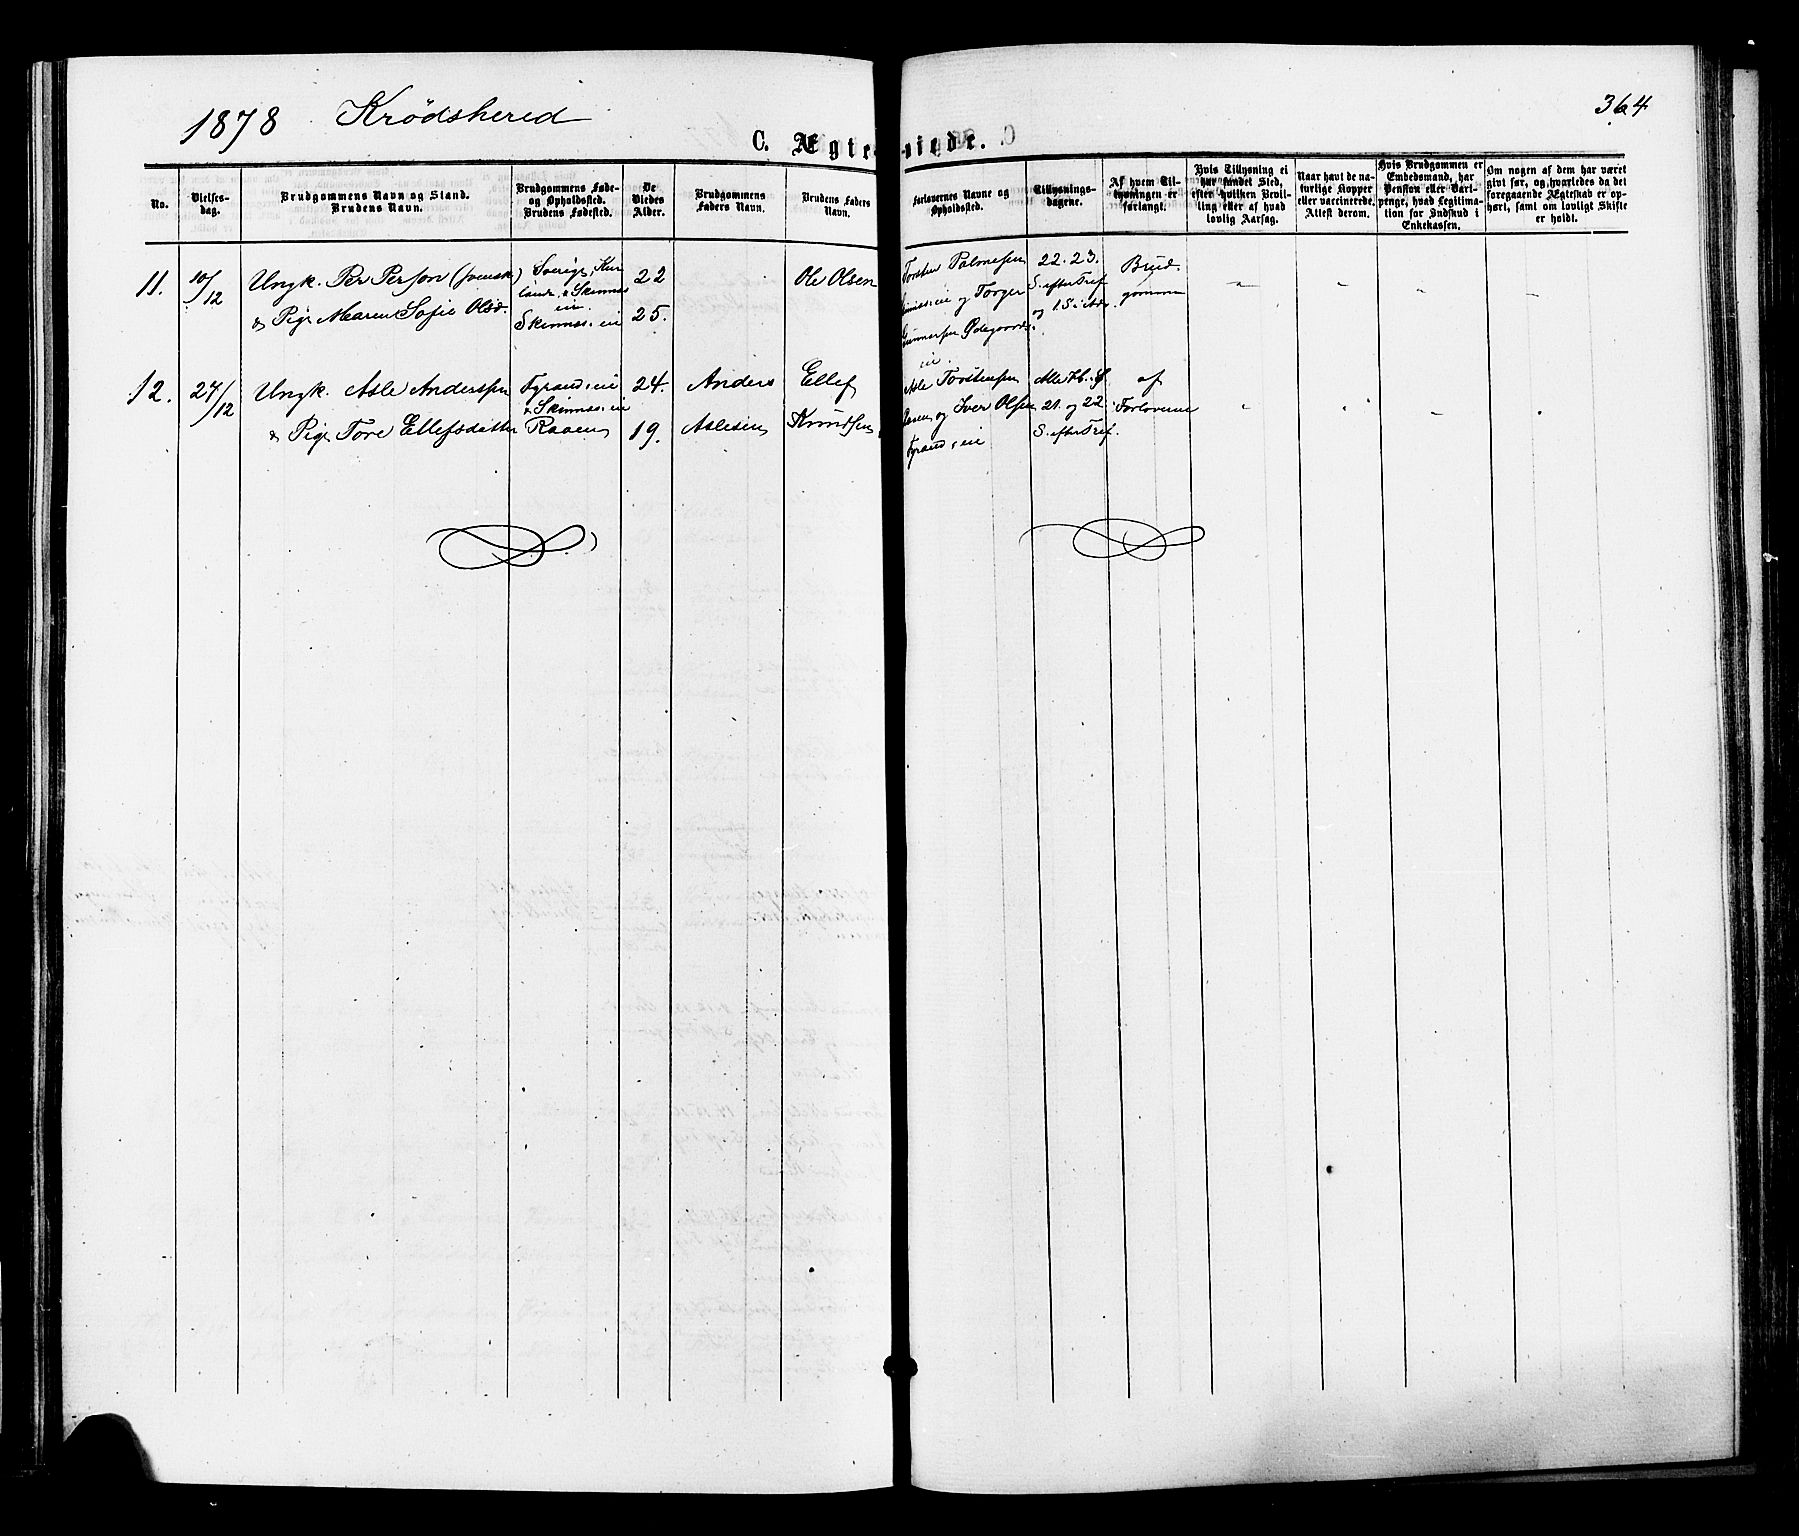 1878 Krødshered
364
C. Ægteviede.
No.
Vielses-
dag.
Brudgommens Navn og Stand.
Brudens Navn.
Brudgommens Føde-
og Opholdssted.
Brudens Fødested.
De
Viedes
Alder.
Brudgommens
Faders Navn.
Brudens Faders
Navn.
Forlovernes Navne og
Opholdssted.
Tillysnings-
dagene.
Af hvem Til-
lysningen er
forlangt.
Hvis Tillysning ei
har fundet Sted,
efter hvilken Bevil-
ling eller af hvad
lovlig Aarsag.
Naar havt de na-
turlige Kopper
eller vaccinerede,
Attest derom.
Hvis Brudgommen er
Embedsmand, har
Pension eller Vart-
penge, hvad Legitima-
tion for Indskud i
Enkekassen.
Om nogen af dem har været
givt før, og hvorledes da det
foregaaende Ægteskab er op-
hørt, samt om lovligt Skifte
er holdt.
11. 10/12
Ungk. Per Person (svensk)
& Pige Maren Sofie Olsd.
Sverige,
& Skinnes
eie.
Skinnes: eie
22
25.
Ole Olsen
Torsten Palmesen
og Torger
Gunnersen Ødegaards
eie.
22. 23.
S. efter Tref
og 1 S. i Adv.
Brud-
gommen
" " " "
12. 27/12
Ungk. Asle Anderssen
& Pige Tore Ellefsdatter
& Skinnes: eie
Raaen
24.
19.
Anders
Aslesen
Ellef
Knudsen
Asle Torstensen
Raaen og Iver Olsen
eie
21. og 22
S. efter Tref.
af
Forloverne
" " " "